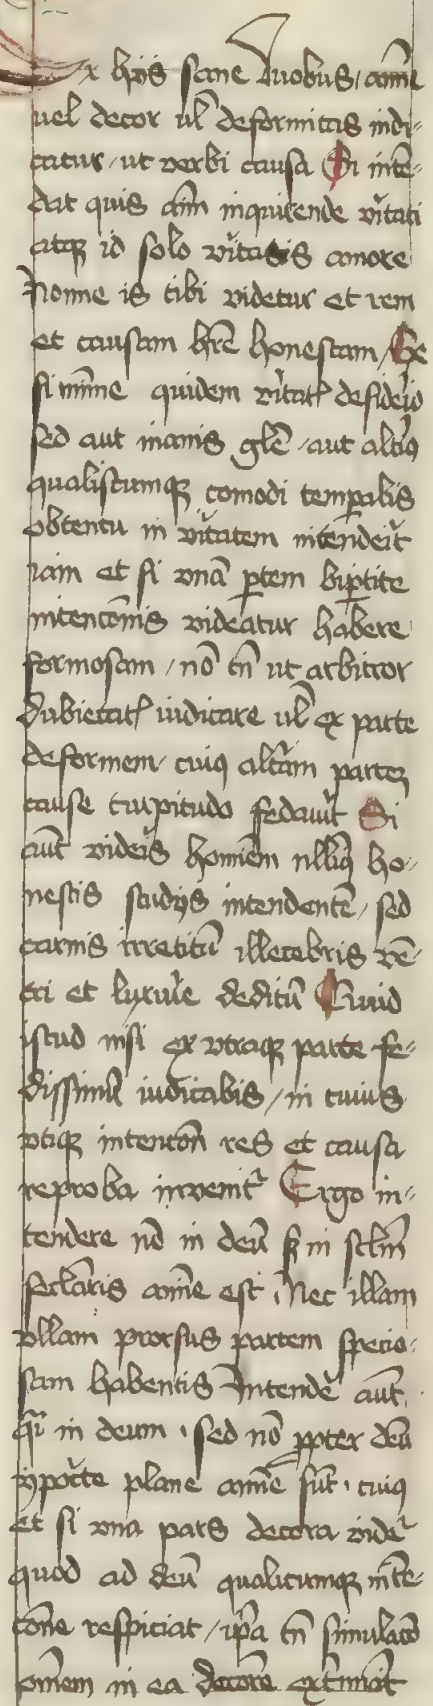 Ex hijs sane duobus, aīe
uel decor ul̄ deformitas indi-
catur, ut verbi causa Si intē-
dat quis aīm inquirende v̓itati
atqꝫ id solo v̓itatis amore
Nonne is tibi videtur et rem
et causam hr̄e honestam, Qꝫ
si mīme quidem v̓itatꝭ desid̓io
sed aut inanis glē, aut alt̓iꝰ
qualiscumqꝫ comodi temꝑalis
obtentu in v̓itatem intendeīt
iam et si vnā ꝑtem biꝑtite
intentōnis videatur habere
formosam, nō tn̄ ut arbitror
dubietatꝭ iudicare ul̄ ex parte
deformem, cuiꝰ alt̓am partē
cause turpitudo fedau̓it Si
aūt videīs homīem nll̓iꝰ ho-
nestis studijs intendentē, sed
carnis irretitū illecebris vē-
tri et luxur̓ie deditū Quid
istud nisi ex vtraqꝫ parte fe-
dissimū iudicabis, in cuius
vtiqꝫ intentōn res et causa
reproba inuenit̓ Ergo in-
tendere nō in deū sꝫ in sc̄lm̄
sec̄laris aīe est, Nec illam
vllam prorsus partem specio-
sam habentis Intendē aūt
q̓i in deum, sed nō ꝓpter deū
ypoc̓te plane aīe sūt, cuiꝰ
et si vna pars decora vidēt̓
quod ad deū qualicumqꝫ intē-
cōne respiciat, ip̄a tn̄ simulatō
om̄em in ea decorē ext̓miat